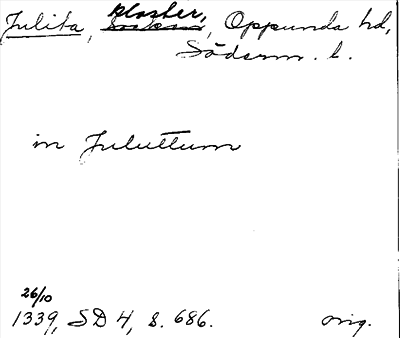 Julita, kloster, Oppunda hd,
Söderm. l.
in Juluttum
26/10
1339, SD 4, s. 686. orig.